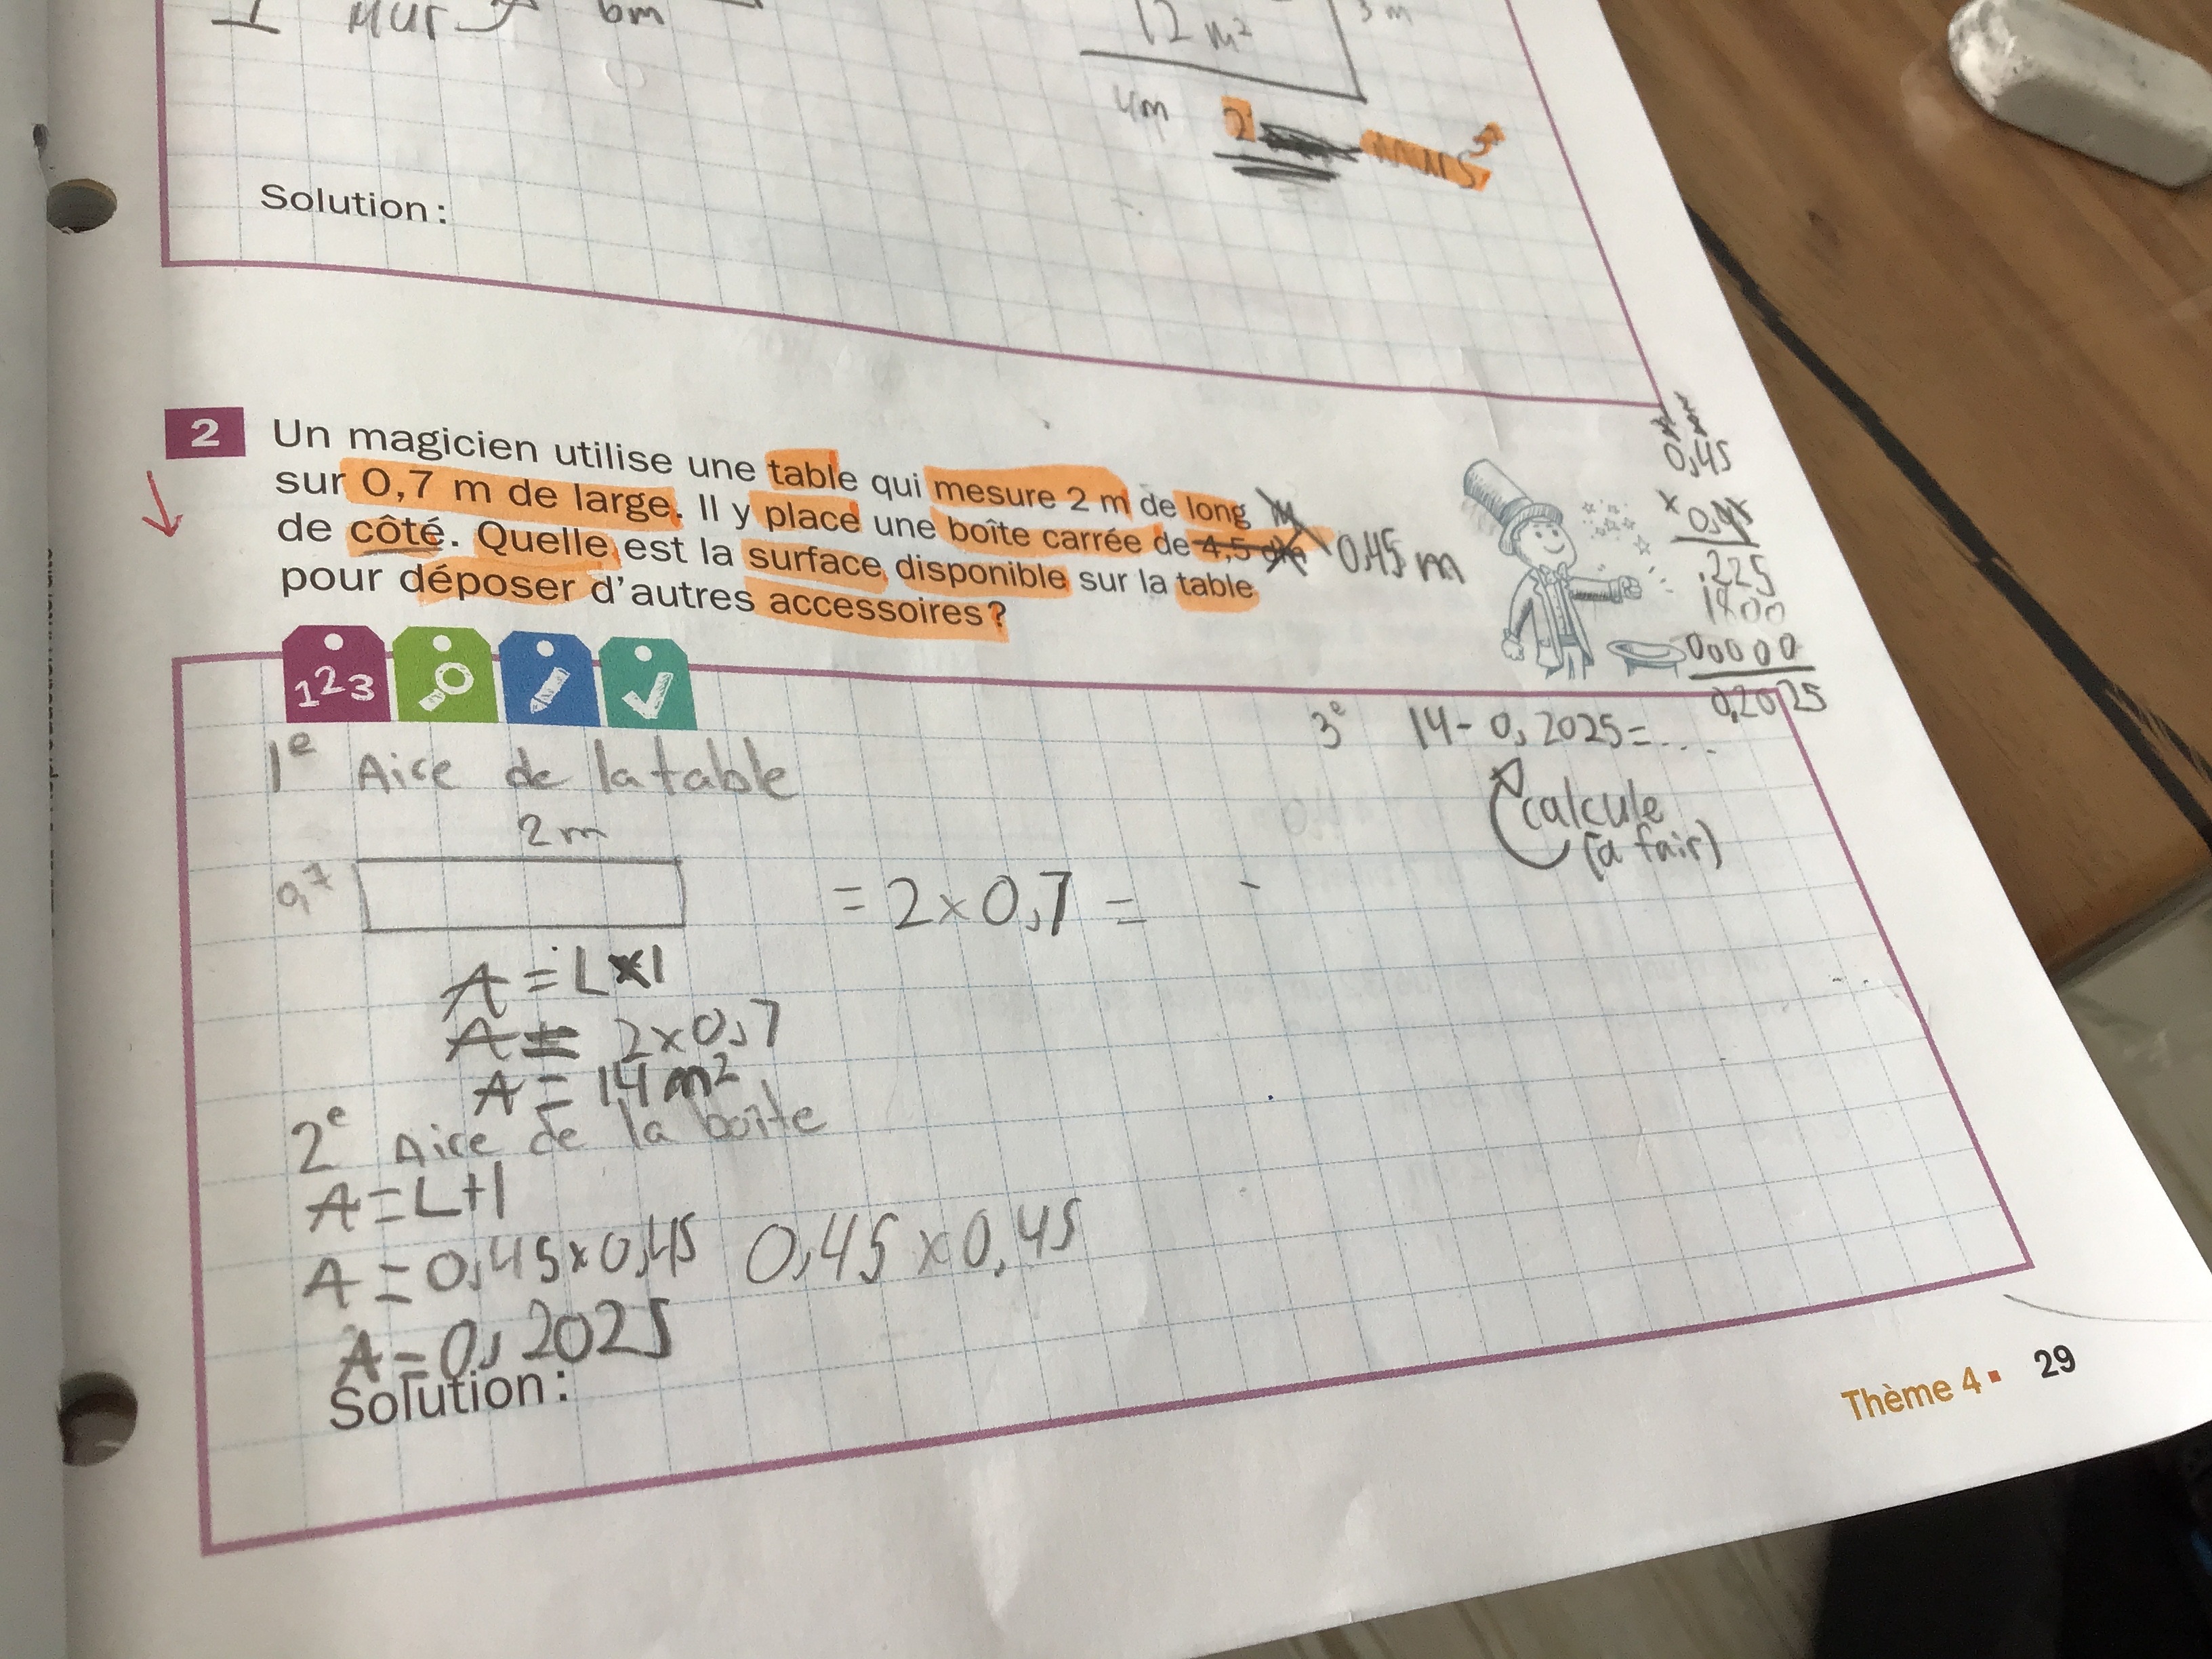 1 Mur 6m
12 m²
3 m
4m
2 murs
Solution :
2 Un magicien utilise une table qui mesure 2 m de long
sur 0,7 m de large. Il y place une boîte carrée de 4,5 dm 0,45 m
de côté. Quelle est la surface disponible sur la table
pour déposer d'autres accessoires ?
0,45
x 0,45
225
1800
00000
0,2025
123
1e Aire de la table
3e 14 - 0,2025 = ...
calcule
(a fair)
2 m
0,7
= 2 x 0,7 =
A = L x l
A = 2 x 0,7
A = 1,4 m²
2e Aire de la boîte
A = L + l
A = 0,45 x 0,45 0,45 x 0,45
A = 0,2025
Solution :
Thème 4 ▪ 29